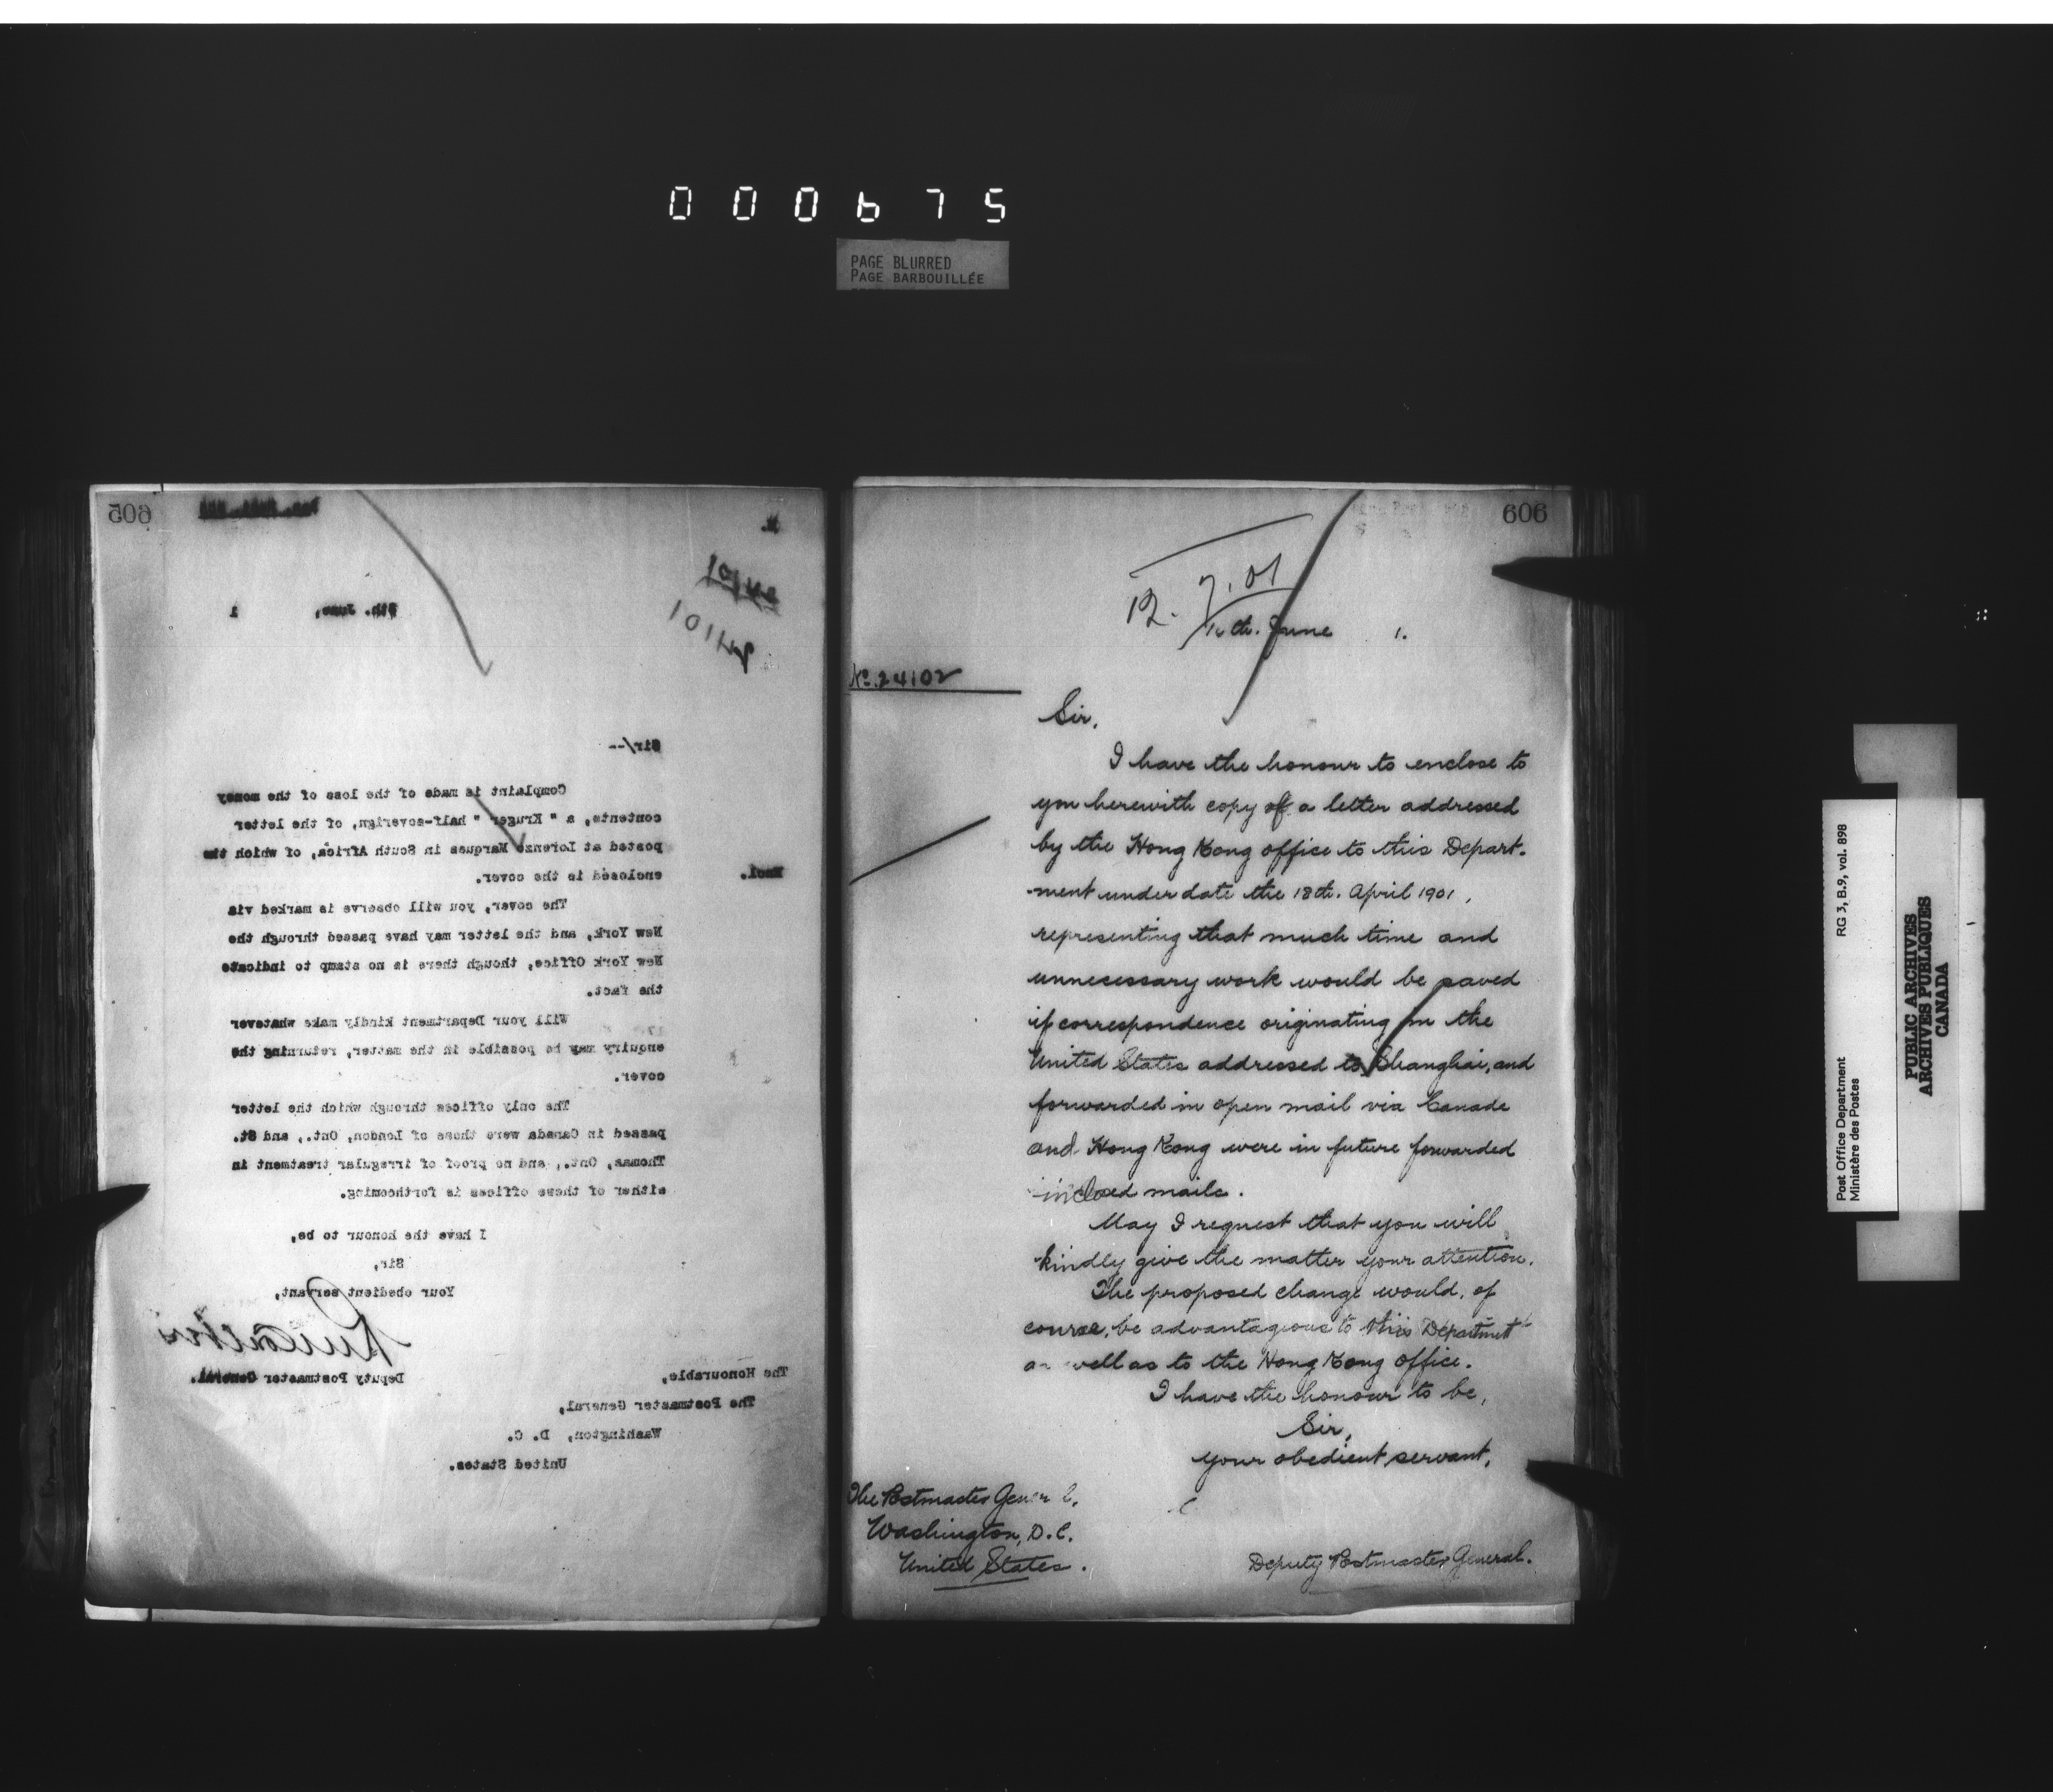 000675
PAGE BLURRED
PAGE BARBOUILLÉE
605
9th. June, 1
24101
Sir/--
Complaint is made of the loss of the money
contents, a " Kruger " half-soverign, of the letter
posted at Lorenzo Marques in South Africa, of which the
Encl.
enclosed is the cover.
The cover, you will observe is marked via
New York, and the letter may have passed through the
New York Office, though there is no stamp to indicate
the fact.
Will your Department kindly make whatever
enquiry may be possible in the matter, returning the
cover.
The only offices through which the letter
passed in Canada were those of London, Ont., and St.
Thomas, Ont., and no proof of irregular treatment in
either of these offices is forthcoming.
I have the honour to be,
Sir,
Your obedient servant,
Deputy Postmaster General.
The Honourable,
The Postmaster General,
Washington, D. C.
United States.
606
12. 7. 01
10th. June 1.
No. 24102
Sir,
I have the honour to enclose to
you herewith copy of a letter addressed
by the Hong Kong office to this Depart-
ment under date the 18th. April 1901,
representing that much time and
unnecessary work would be saved
if correspondence originating in the
United States addressed to Shanghai, and
forwarded in open mail via Canada
and Hong Kong were in future forwarded
in closed mails.
May I request that you will
kindly give the matter your attention.
The proposed change would, of
course, be advantageous to this Department
as well as to the Hong Kong office.
I have the honour to be,
Sir,
your obedient servant,
The Postmaster General.
Washington, D.C.
United States.
Deputy Postmaster General.
Post Office Department
Ministère des Postes
RG 3, B.9, vol. 898
PUBLIC ARCHIVES
ARCHIVES PUBLIQUES
CANADA